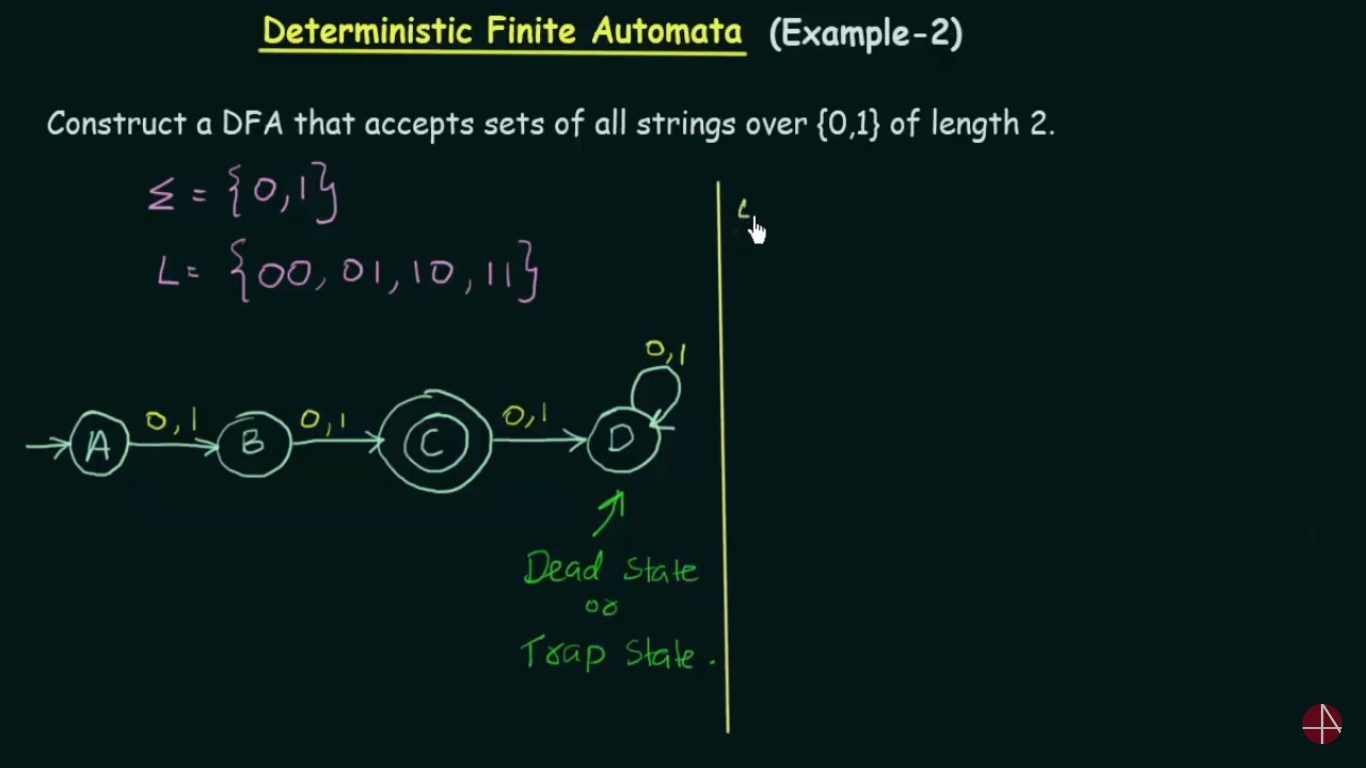 Deterministic Finite Automata (Example-2)
Construct a DFA that accepts sets of all strings over {0,1} of length 2.
Σ = {0,1}
L = {00, 01, 10, 11}
0,1
A 0,1 B 0,1 C 0,1 D
Dead State
or
Trap State.